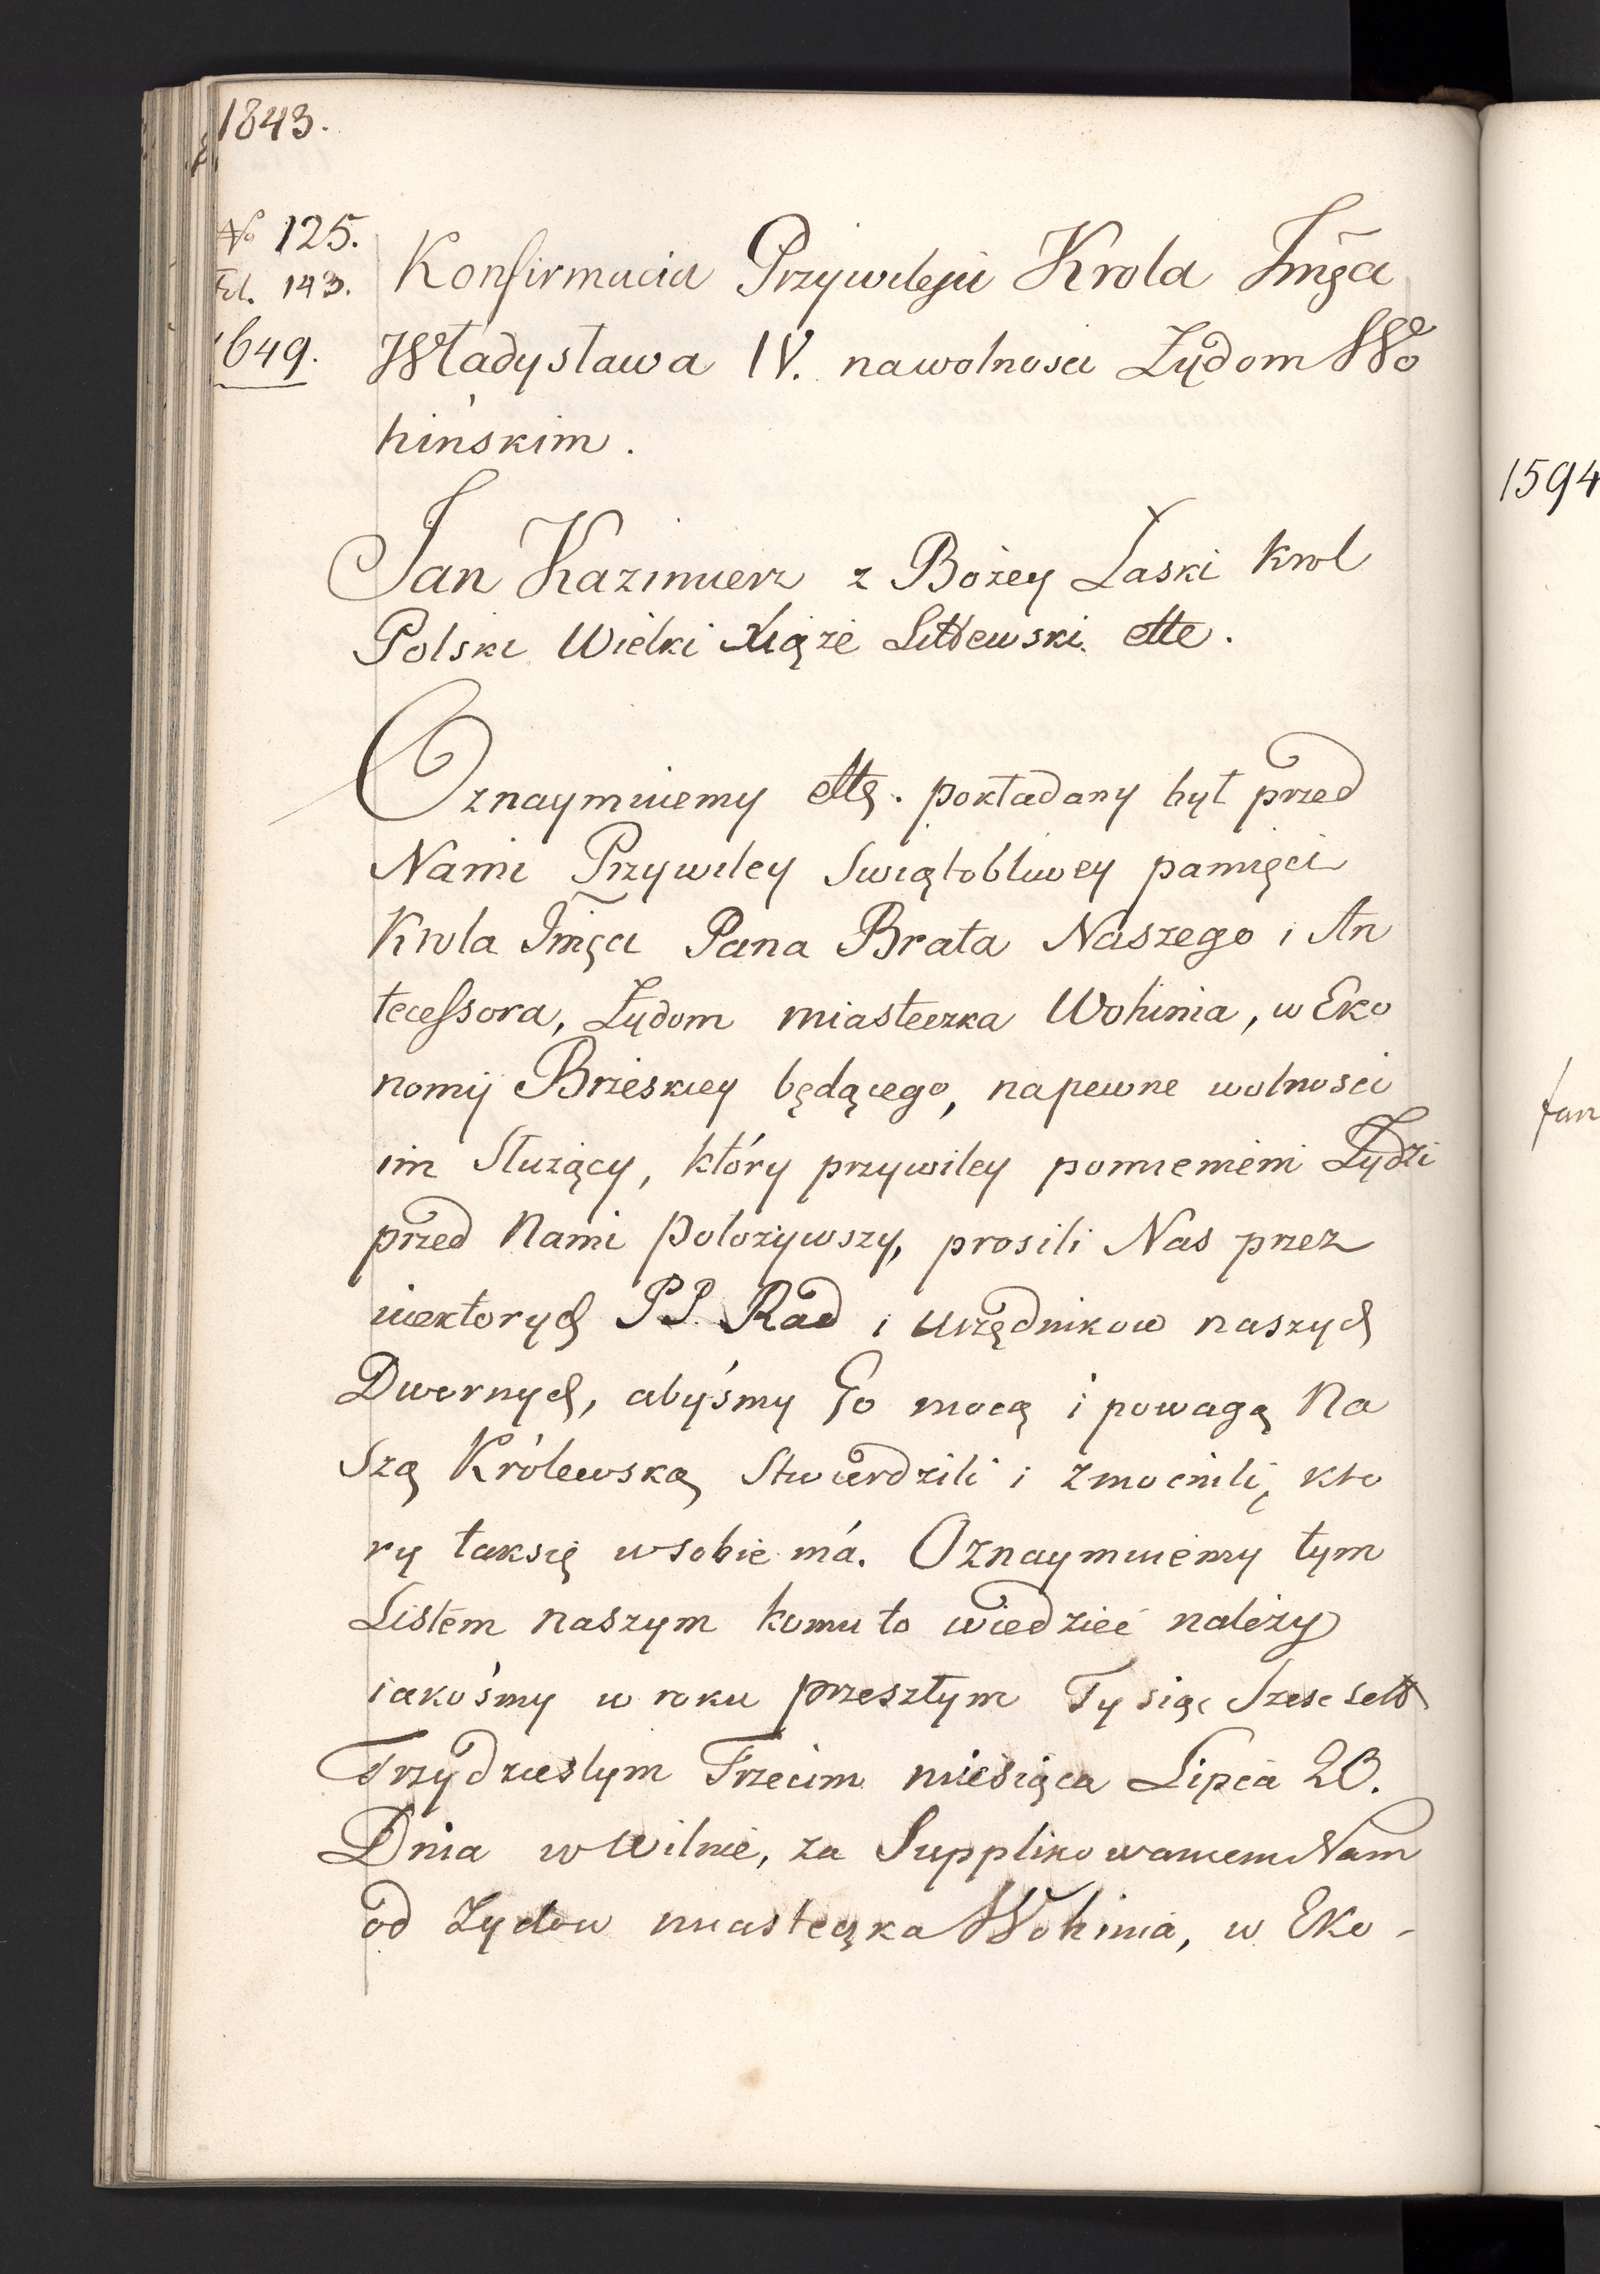 1843.
No 125.
Fol. 143.
1649.
Konfirmacia Przywileju Krola Jmęa
Władysława IV. na wolnosci Żydom Wo
hińskim.
Jan Kazimierz z Bożey Łaski Krol
Polski Wielki Xiąże Littewski ettc.
Oznaymuiemy ettc. pokładany był przed
Nami Przywiley Swiątobliwey pamięci
Krola Jmęci Pana Brata Naszego i An
tecessora, Żydom miasteczka Wohinia, w Eko
nomij Brzeskiey będącego, na pewne wolnosci
im Służący, który przywiley pomienieni Żydzi
przed Nami położywszy, prosili Nas przez
niektorych PP. Rad i Urzędnikow naszych
Dwornych, abyśmy Go mocą i powagą Na
szą Królewską Stwierdzili i zmocnili, kto
ry tak się w sobie má. Oznaymuiemy tym
Listem naszym komu to wiedzieć należy
iakośmy w roku przeszłym Tysiąc Szescsett
Trzydziestym Trzecim miesiąca Lipca 20.
Dnia w Wilnie, za Supplikowaniem Nam
od Żydow miasteczka Wohinia, w Eko-
1594